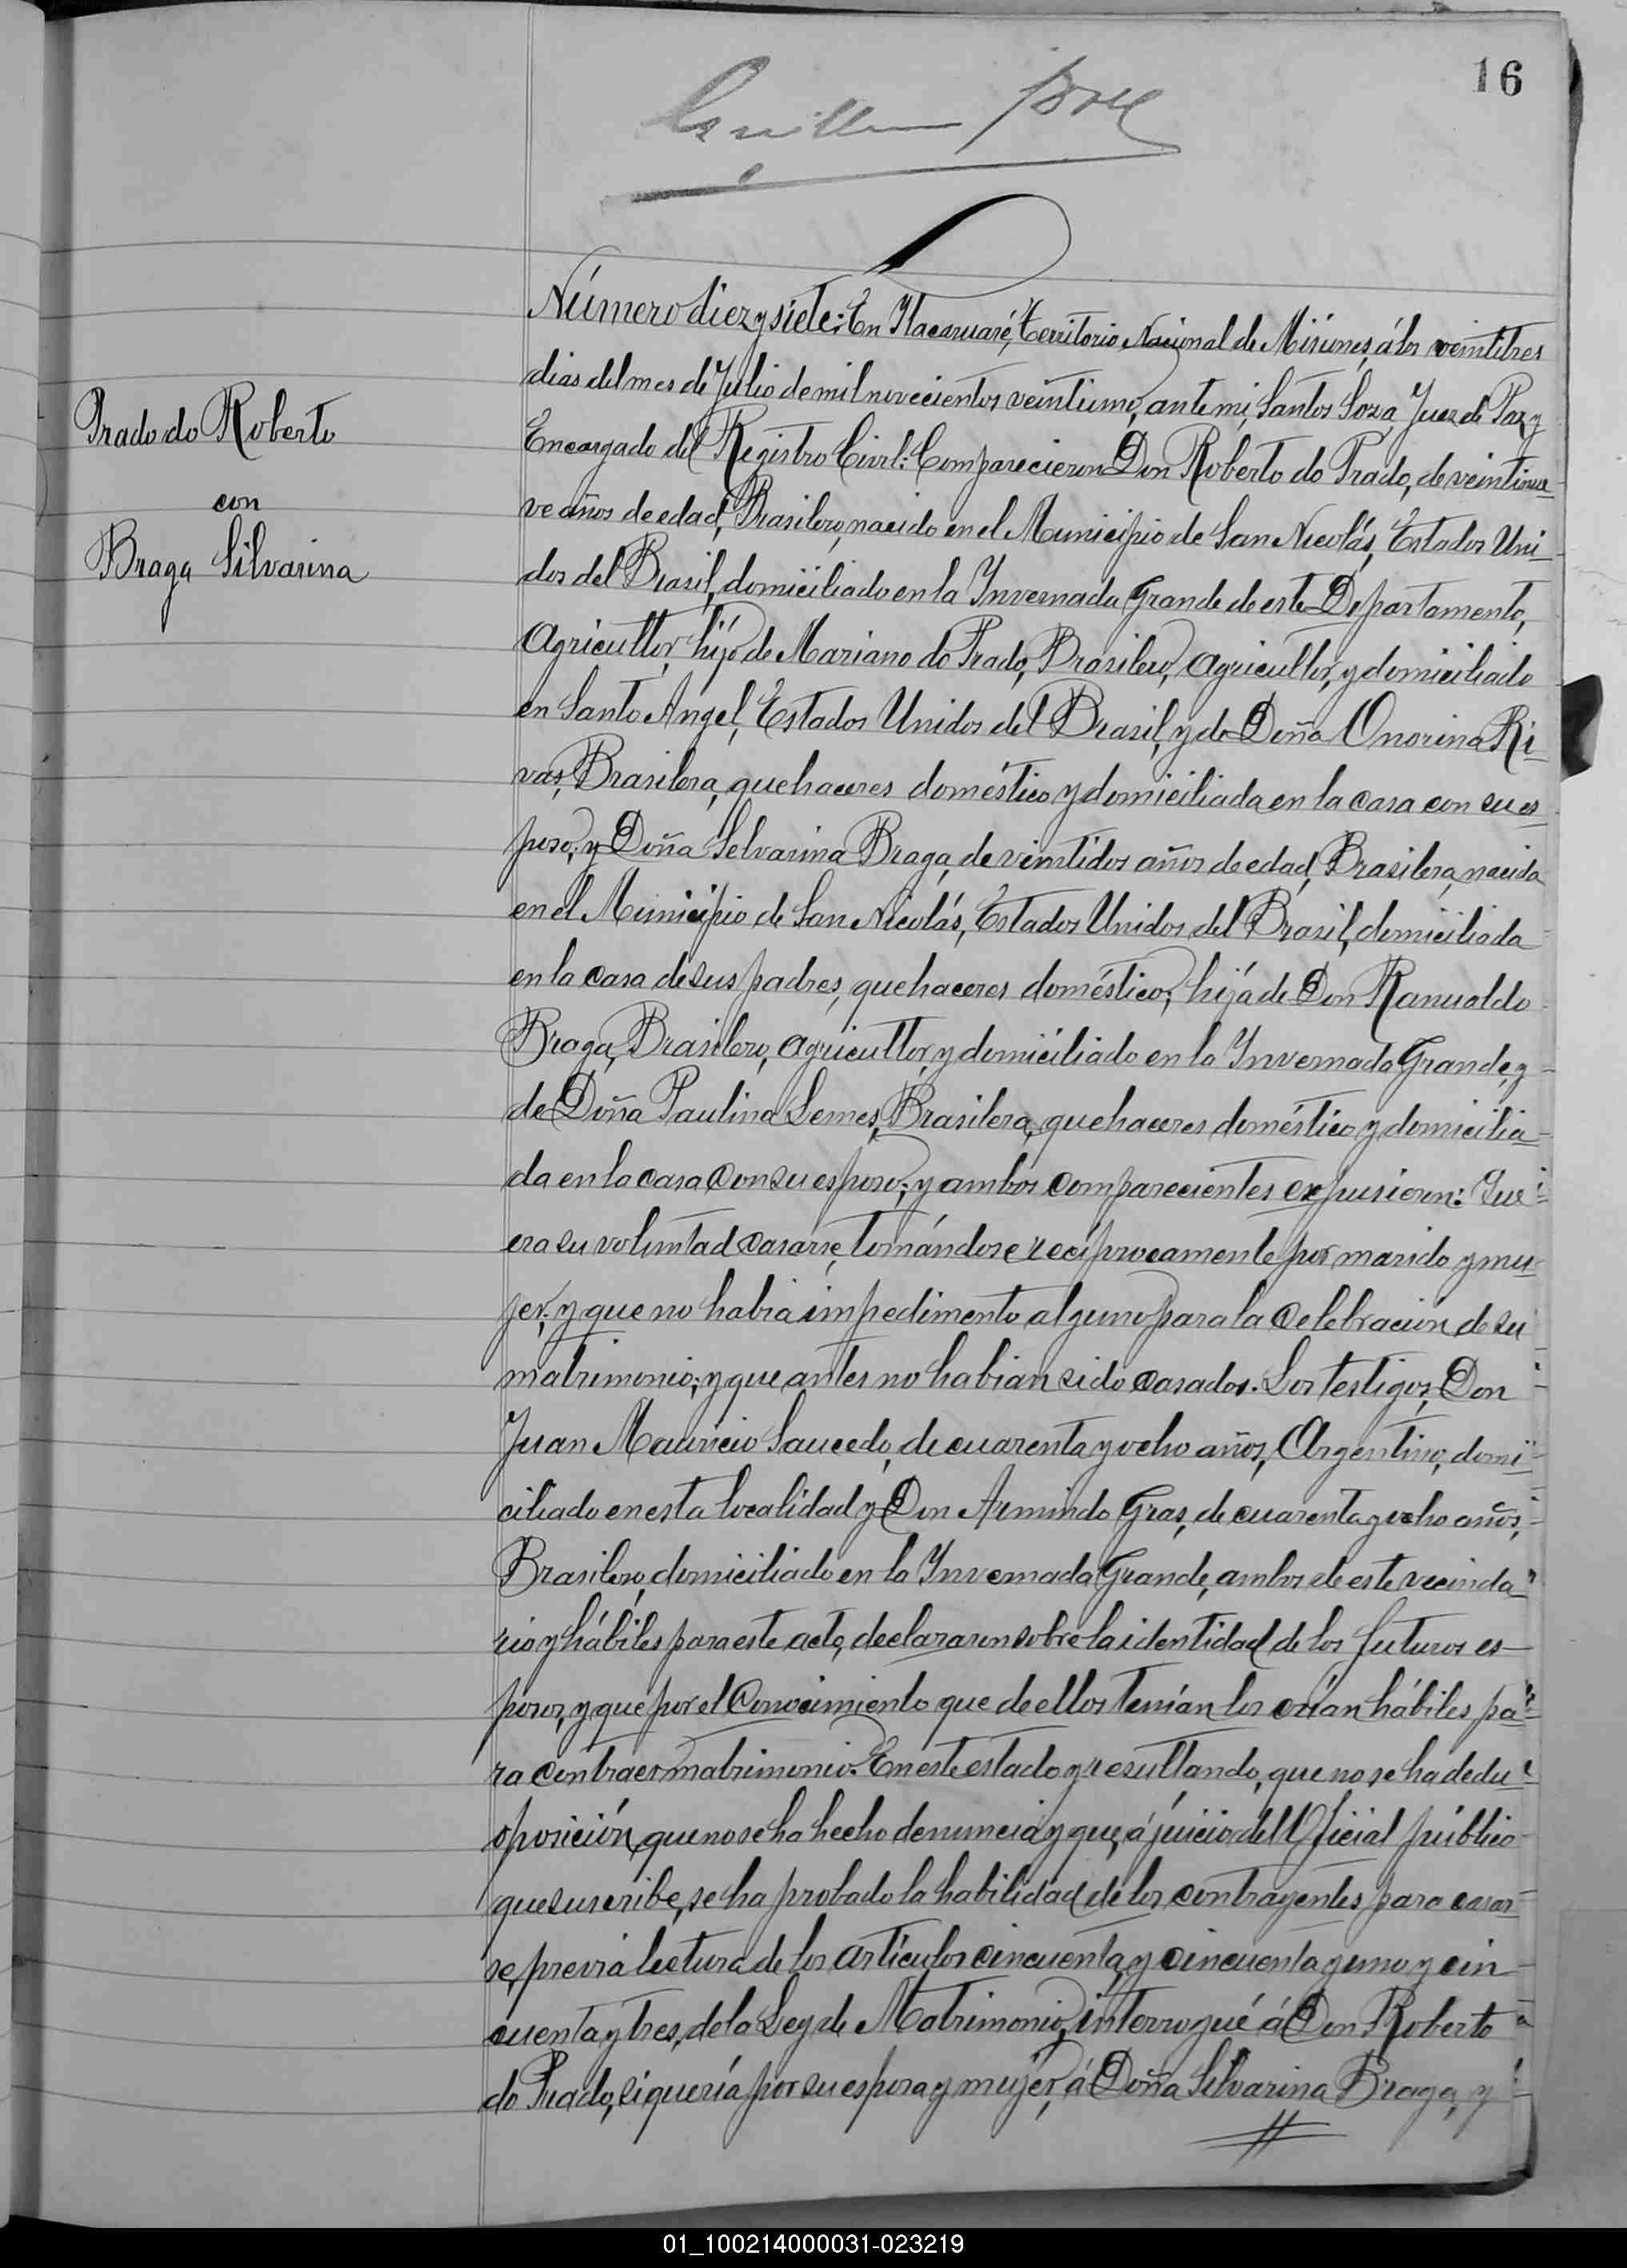 16
Número diez y siete: En Itacaruaré, Territorio Nacional de Misiones, á los veintitres
dias del mes de Julio de mil novecientos veintiuno, ante mi, Santos Sosa Juez de Paz y
Prado do Roberto
Encargado del Registro Civil: Comparecieron Don Roberto do Prado, de veintinue-
con
ve años de edad, Brasilero, nacido en el Municipio de San Nicolás, Estados Uni-
Braga Silvarina
dos del Brasil, domiciliado en la Invernada Grande de este Departamento,
Agricultor, hijo de Mariano do Prado, Brasilero, Agricultor, y domiciliado
en Santo Angel, Estados Unidos del Brasil, y de Doña Onorina Ri-
vas, Brasilera, quehaceres doméstico y domiciliada en la casa con su es-
poso; y Doña Selvarina Braga, de veintidos años de edad, Brasilera, nacida
en el Municipio de San Nicolás, Estados Unidos del Brasil, domiciliada
en la casa de sus padres, quehaceres doméstico; hija de Don Ranualdo
Braga, Brasilero, Agricultor, y domiciliado en la Invernada Grande, y
de Doña Paulina Lemes, Brasilera, quehaceres doméstico y domicilia-
da en la casa con su esposo; y ambos comparecientes expusieron: Que
era su voluntad casarse, tomándose recíprocamente por marido y mu-
jer; y que no habia impedimento alguno para la celebración de su
matrimonio; y que antes no habian sido casados. Los testigos, Don
Juan Mauricio Saucedo, de cuarenta y ocho años, Argentino, domi-
ciliado en esta localidad y Don Armindo Gras, de cuarenta y ocho años,
Brasilero, domiciliado en la Invernada Grande, ambos de este vecinda-
rio y hábiles para este acto, declararon sobre la identidad de los futuros es-
posos, y que por el conocimiento que de ellos tenían los crían hábiles pa-
ra contraer matrimonio. En este estado y resultando, que no se ha dedu-
oposición, que no se ha hecho denuncia y que, á juicio del Oficial público
que suscribe, se ha probado la habilidad de los contrayentes para casar-
se, previa lectura de los artículos cincuenta, y cincuenta y uno y cin-
cuenta y tres, de la Ley de Matrimonio, interrogué á Don Roberto
do Prado, si quería por su esposa y mujer, á Doña Silvarina Braga, y
01_100214000031-023219